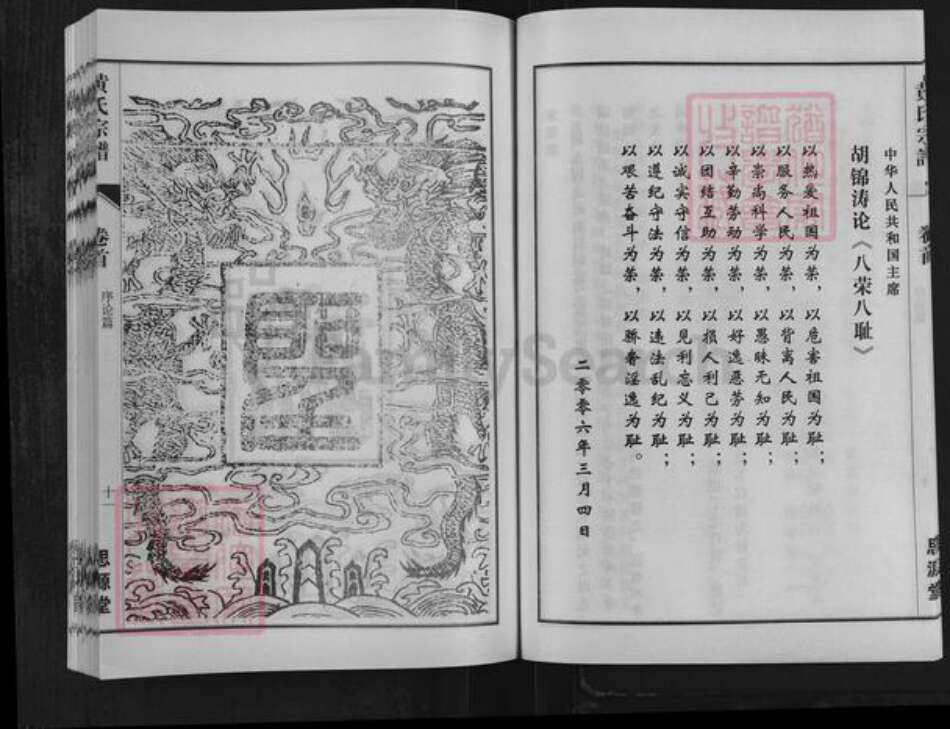 中华人民共和国主席
胡锦涛论《八荣八耻》
以热爱祖国为荣，以危害祖国为耻；
以服务人民为荣，以背离人民为耻；
以崇尚科学为荣，以愚昧无知为耻；
以辛勤劳动为荣，以好逸恶劳为耻；
以团结互助为荣，以损人利己为耻；
以诚实守信为荣，以见利忘义为耻；
以遵纪守法为荣，以违法乱纪为耻；
以艰苦奋斗为荣，以骄奢淫逸为耻。
二零零六年三月四日
思源堂
黄氏宗谱
卷首
序论篇
十一
思源堂
FamilySearch